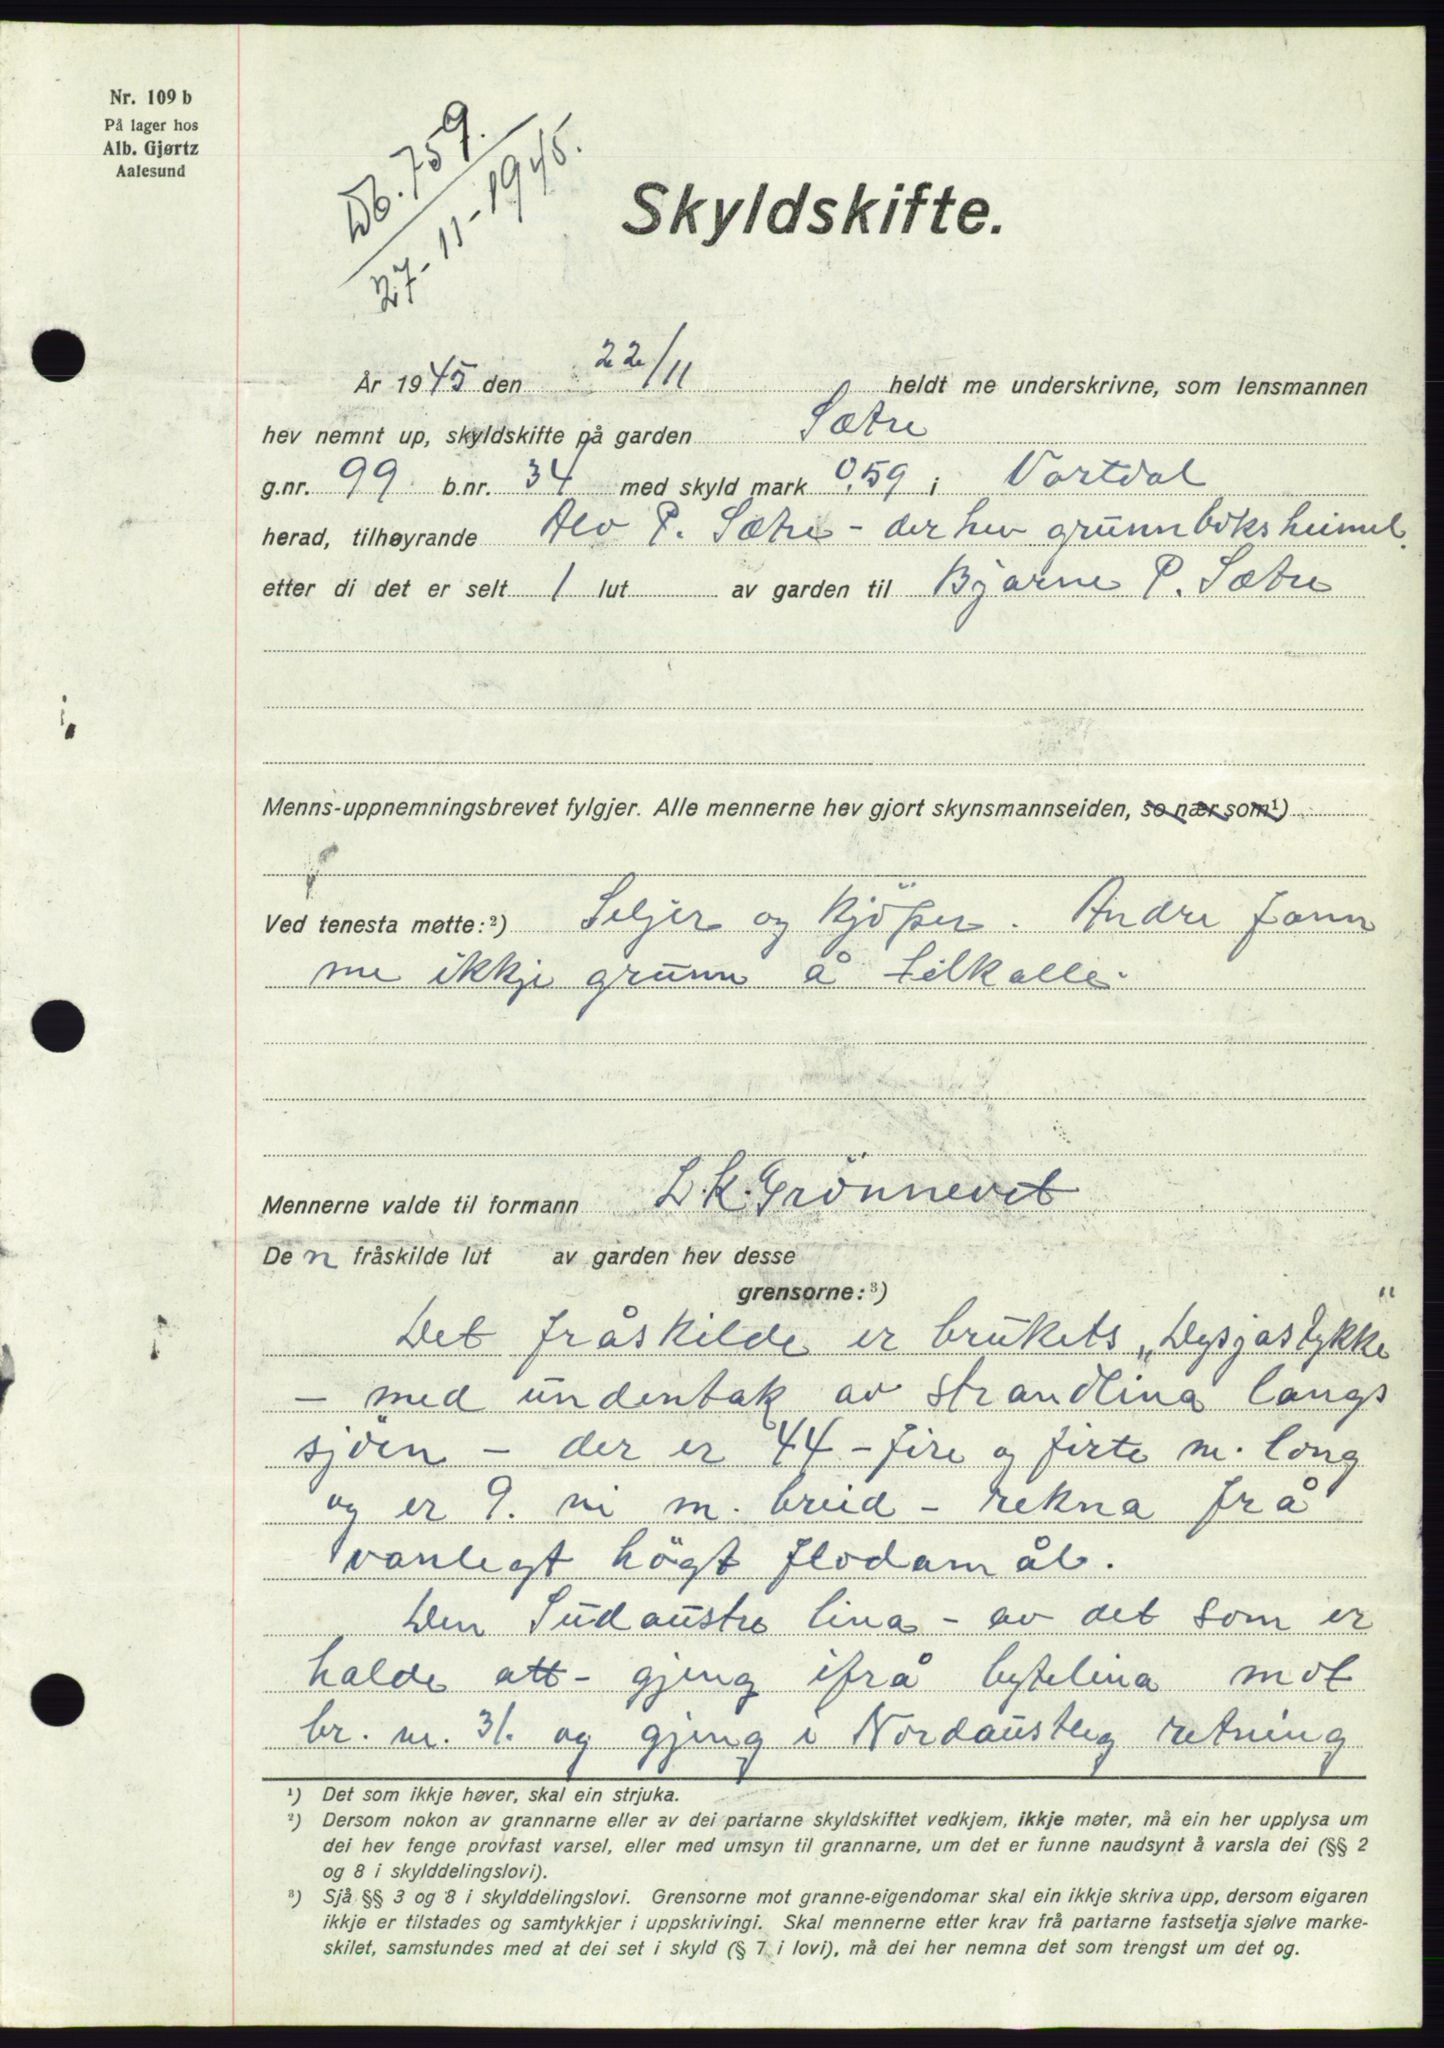 Nr. 109 b
På lager hos
Alb. Gjørtz
Aalesund
Db. 759.
27-11-1945.
Skyldskifte.
År 1945 den 22/11 heldt me underskrivne, som lensmannen
hev nemnt up, skyldskifte på garden Sætre
g.nr. 99 b.nr. 34 med skyld mark 0,59 i Vartdal
herad, tilhøyrande Alv P. Sætre - der hev grunnboksheimel.
etter di det er selt 1 lut av garden til Bjarne P. Sætre
Menns-uppnemningsbrevet fylgjer. Alle mennerne hev gjort skynsmannseiden, so nær som¹)
Ved tenesta møtte: ²) Seljer og kjöper. Andre fann
me ikkje grunn å tilkalle.
Mennerne valde til formann L. K. Grönnevet
De n fråskilde lut av garden hev desse
grensorne: ³)
Det fråskilde er brukets „Dysjastykke"
- med undentak av strandlina langs
sjöen - der er 44 - fire og firte m. long
og er 9. ni m. breid - rekna frå
vanlegt högt flodamål.
Den Sudaustre lina - av det som er
halde att - gjeng ifrå bytelina mot
br. nr. 31. og gjeng i Nordaustleg retning
¹) Det som ikkje høver, skal ein strjuka.
²) Dersom nokon av grannarne eller av dei partarne skyldskiftet vedkjem, ikkje møter, må ein her upplysa um
dei hev fenge provfast varsel, eller med umsyn til grannarne, um det er funne naudsynt å varsla dei (§§ 2
og 8 i skylddelingslovi).
³) Sjå §§ 3 og 8 i skylddelingslovi. Grensorne mot granne-eigendomar skal ein ikkje skriva upp, dersom eigaren
ikkje er tilstades og samtykkjer i uppskrivingi. Skal mennerne etter krav frå partarne fastsetja sjølve marke-
skilet, samstundes med at dei set i skyld (§ 7 i lovi), må dei her nemna det som trengst um det og.